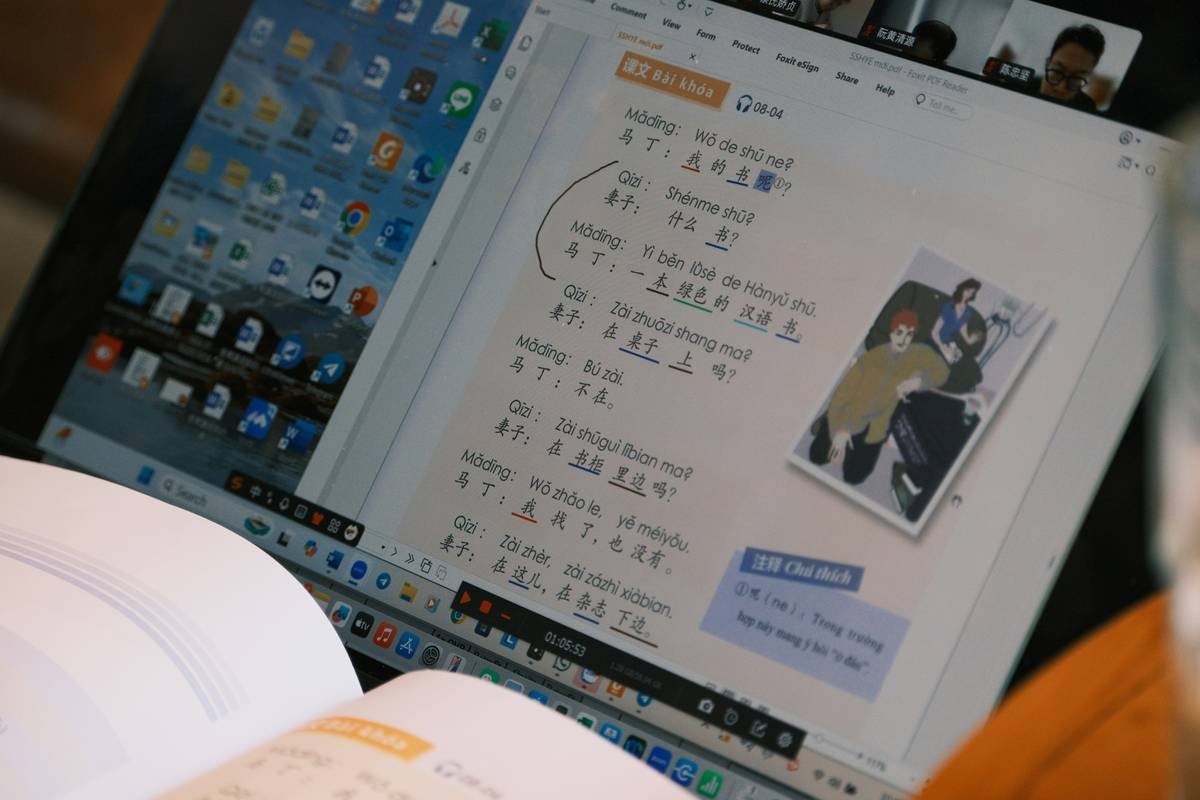 Comment View Form Protect Foxit eSign Share Help
Tell me...
SSHYE mới.pdf - Foxit PDF Reader
SSHYE mới.pdf
Start
阮黄清源
陈忠坚
课文 Bài khóa
08-04
Mǎdīng: Wǒ de shū ne?
马 丁: 我 的 书 呢①?
Qīzi: Shénme shū?
妻子: 什么 书?
Mǎdīng: Yì běn lǜsè de Hànyǔ shū.
马 丁: 一 本 绿色 的 汉语 书。
Qīzi: Zài zhuōzi shang ma?
妻子: 在 桌子 上 吗?
Mǎdīng: Bú zài.
马 丁: 不 在。
Qīzi: Zài shūguì lǐbian ma?
妻子: 在 书柜 里边 吗?
Mǎdīng: Wǒ zhǎo le, yě méiyǒu.
马 丁: 我 找 了, 也 没有。
Qīzi: Zài zhèr, zài zázhì xiàbian.
妻子: 在 这儿, 在 杂志 下边。
注释 Chú thích
①呢 (ne): Trong trường
hợp này mang ý hỏi "ở đâu"
Search
01:05:53
117%
bài khóa
08-04